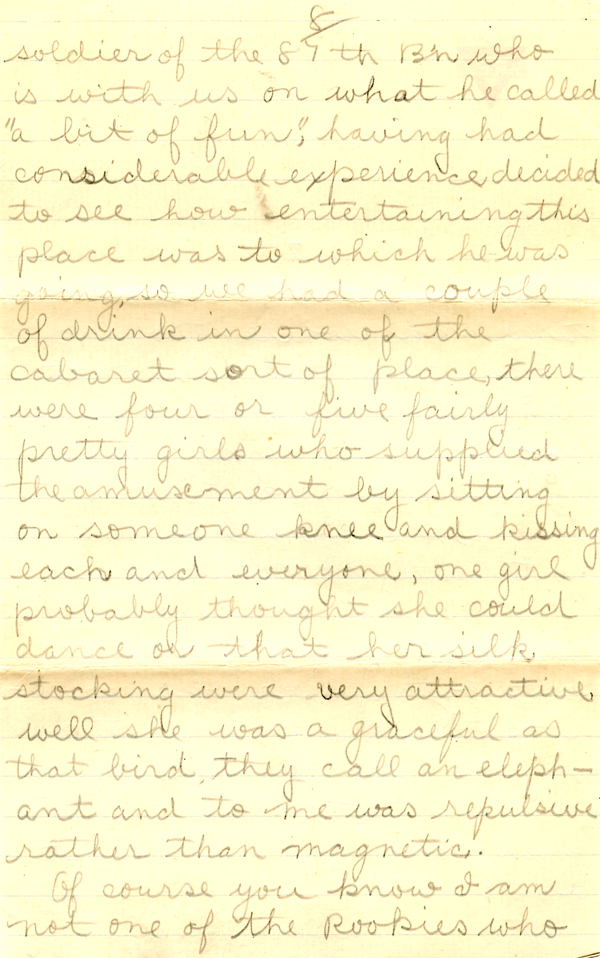 8
soldier of the 87th B'n who
is with us on what he called
"a bit of fun", having had
considerable experience, decided
to see how entertaining this
place was to which he was
going, so we had a couple
of drink in one of the
cabaret sort of place, there
were four or five fairly
pretty girls who supplied
the amusement by sitting
on someone knee and kissing
each and everyone, one girl
probably thought she could
dance or that her silk
stocking were very attractive
well she was a graceful as
that bird, they call an eleph-
ant and to me was repulsive
rather than magnetic.
Of course you know I am
not one of the Rookies who